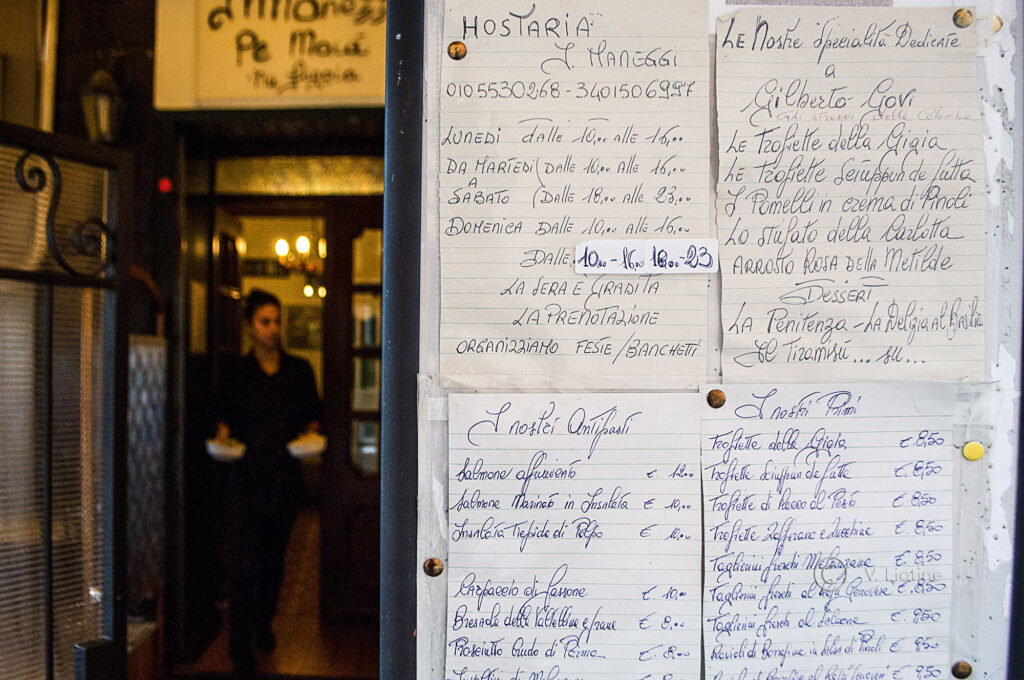 Pe Maiá
HOSTARIA
I. MANEGGI
0105530268-3401506997
LUNEDI DALLE 10,00 ALLE 16,00
DA MARTEDI (DALLE 10,00 ALLE 16,00
A
SABATO (DALLE 18,00 ALLE 23,00
DOMENICA DALLE 10,00 ALLE 16,00
DALLE 10,00-16,00 18,00-23
LA SERA E GRADITA
LA PRENOTAZIONE
ORGANIZZIAMO FESTE/BANCHETTI
Le Nostre Specialità Dedicate
a
Gilberto Govi
Le Trofiette della Gigia
Le Trofiette Sciuppun de futta
I Pomelli in crema di Pinoli
Lo stufato della Carlotta
ARROSTO ROSA DELLA Metilde
DESSERT
LA Penitenza - LA Delizia al Basilico
Il Tiramisú ... su...
I nostri Antipasti
Salmone affumicato €. 12,00
Salmone Marinato in Insalata € 10,00
Insalata Tiepida di Polpo € 10,00
Carpaccio di Fassone €. 10,00
Bresaola della Valtellina e grana € 8,00
Prosciutto Crudo di Parma €. 8,00
I nostri Primi
Trofiette della Gigia €. 8,50
Trofiette Sciuppun de futta €. 8,50
Trofiette di Recco al Pesto € 8,50
Trofiette Zafferano e Zucchine € 8,50
Taglierini freschi Melanzane €. 8,50
Taglierini freschi al Genovese € 8,50
Taglierini freschi al Salmone € 9,50
Ravioli di Boragine in salsa di Pinoli € 9,50
€ 9,50
© V. Liotine